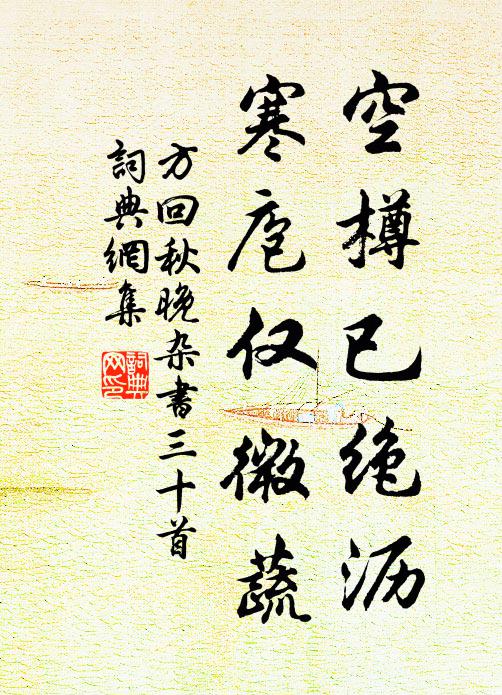 空樽已绝沥
寒庖仅微蔬
方回秋晚杂書三十首
詞典網集
詞典网印